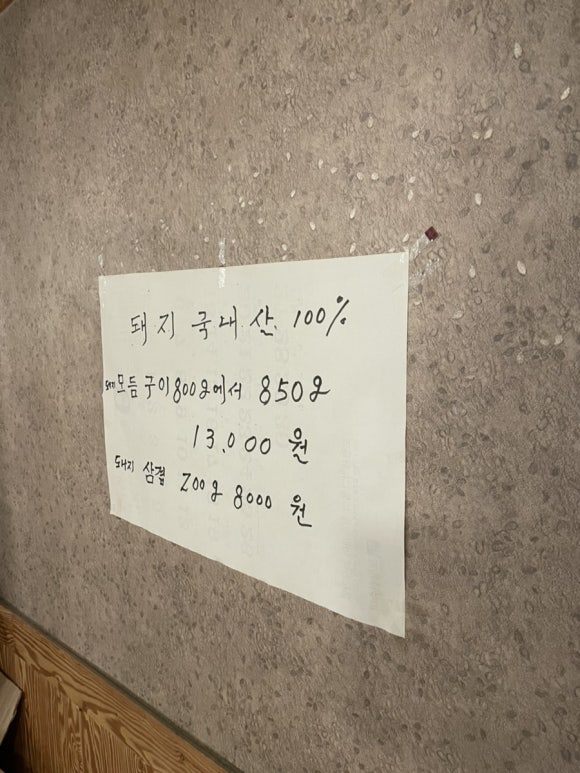 돼지 국내산. 100%
돼지 모듬구이 800g에서 850g
13.000 원
돼지 삼겹 200g 8000 원